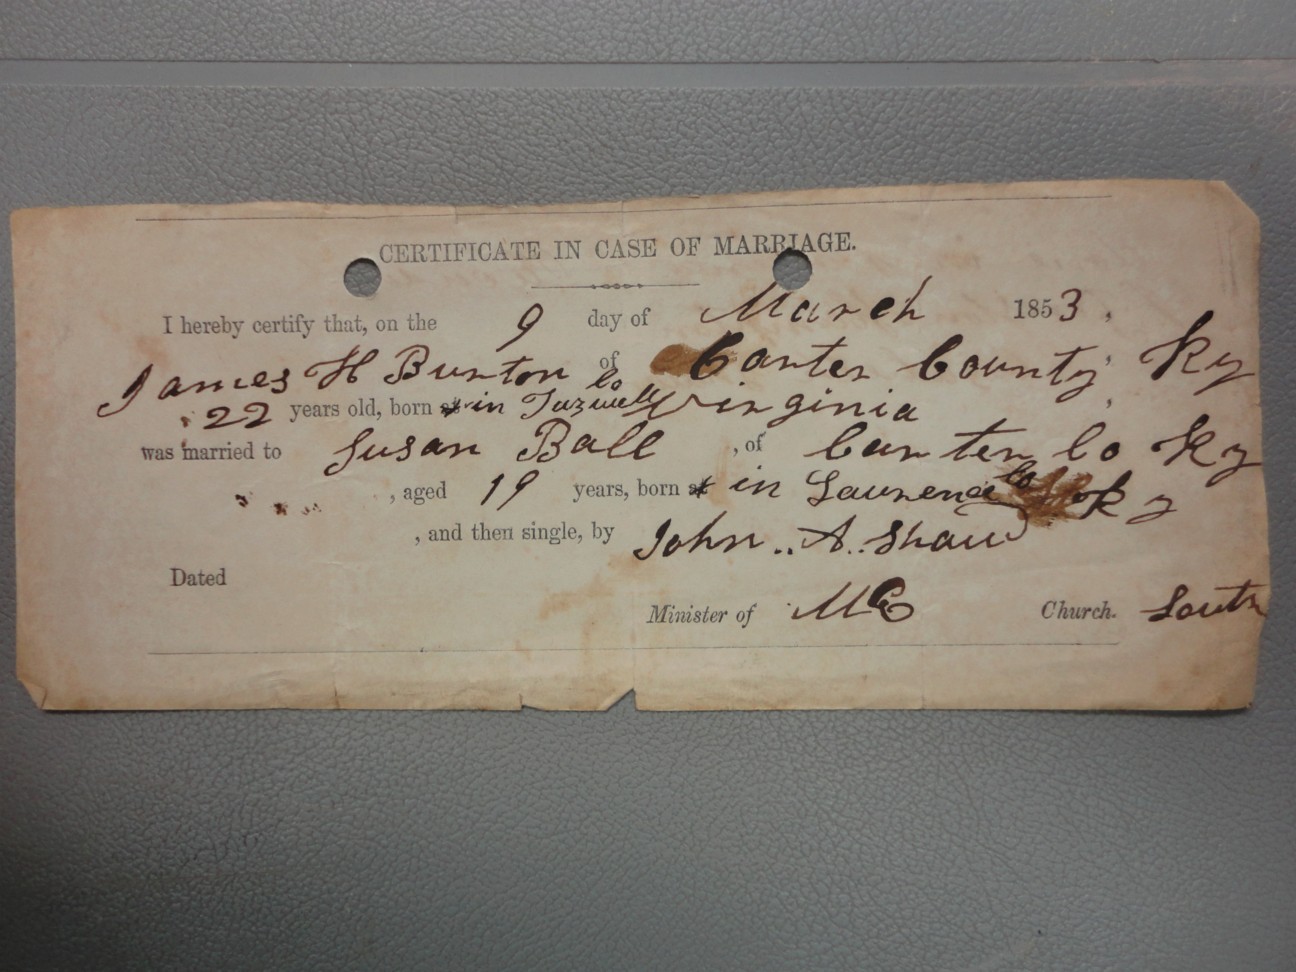 CERTIFICATE IN CASE OF MARRIAGE.
I hereby certify that, on the 9 day of March 1853,
James H Burton of Carter County, Ky
22 years old, born at in Tazwell Co Virginia,
was married to Susan Ball, of Carter Co Ky
, aged 19 years, born at in Laurence Co Ky
, and then single, by John .. A.. Shaw
Dated
Minister of ME Church. South